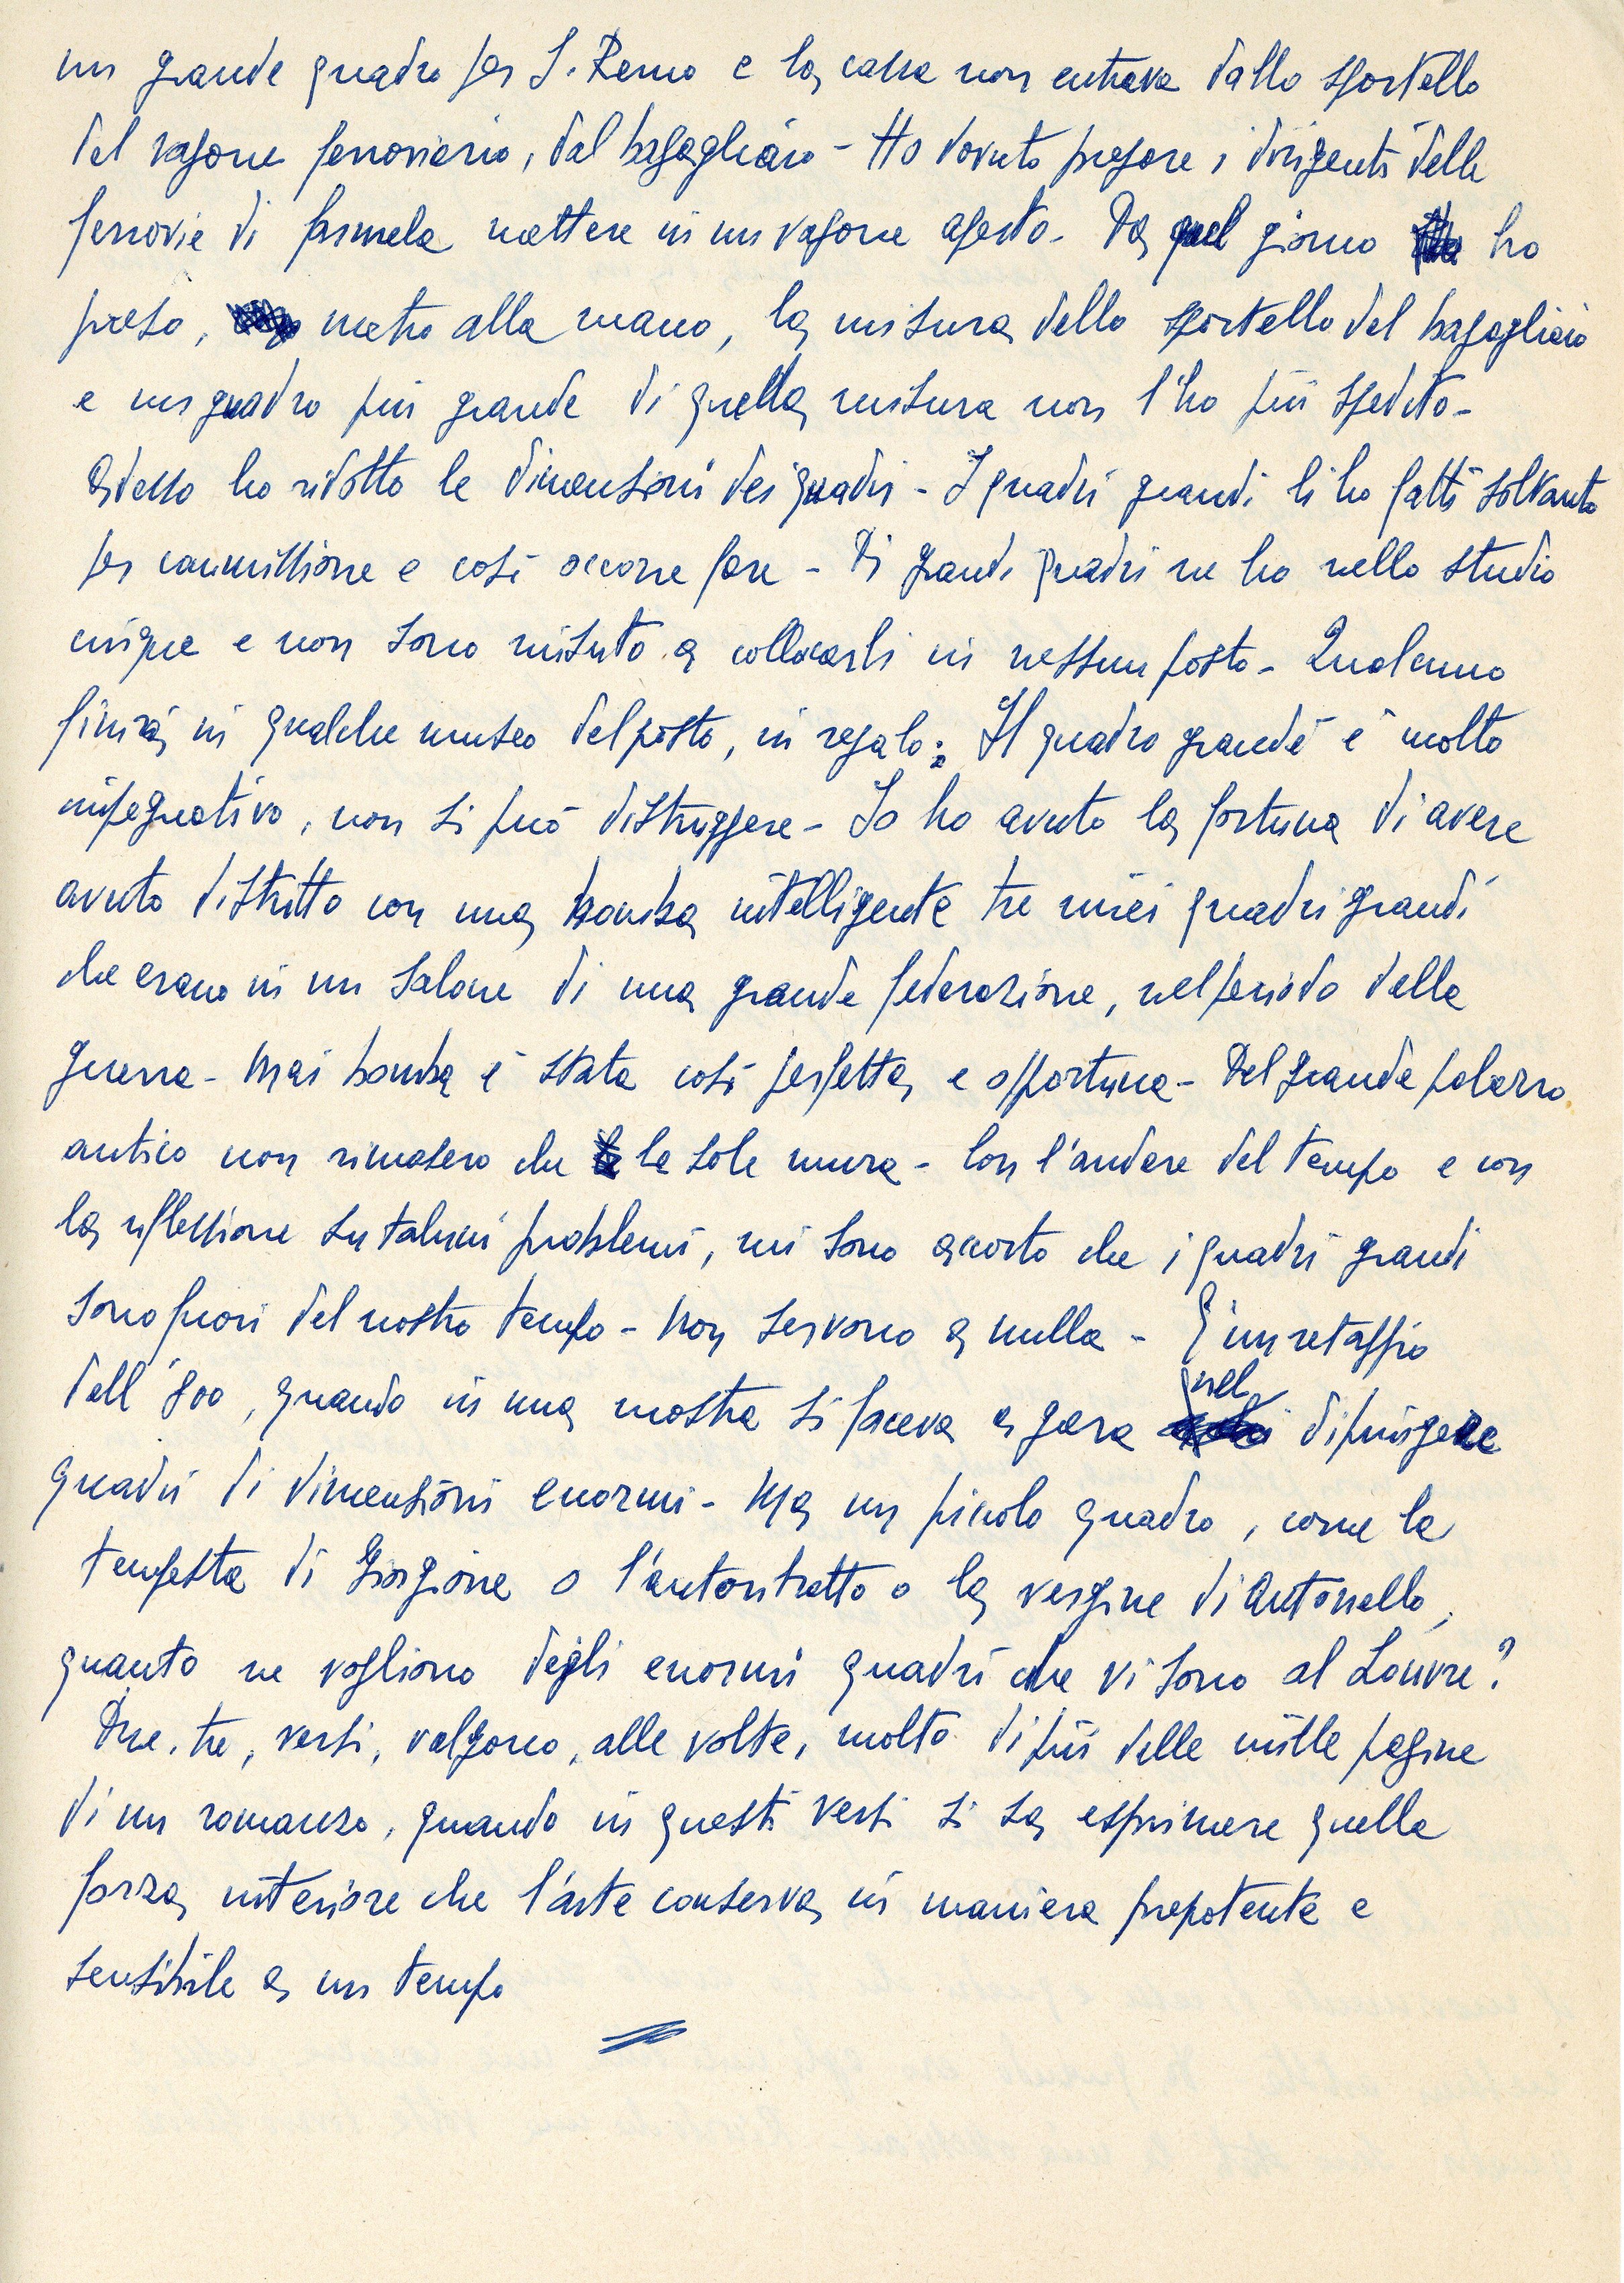 un grande quadro per S. Remo e la cassa non entrava dallo sportello
del vagone ferroviario, dal bagagliaio - Ho dovuto pregare i dirigenti delle
ferrovie di farmela mettere in un vagone aperto - Da quel giorno ho
preso, metro alla mano, la misura dello sportello del bagagliaio
e un quadro più grande di quella misura non l'ho più spedito -
Adesso ho ridotto le dimensioni dei quadri - I quadri grandi li ho fatti soltanto
per commissione e così occorre fare - Di grandi quadri ne ho nello studio
cinque e non sono riuscito a collocarli in nessun posto - Qualcuno
finirà in qualche museo del posto, in regalo: Il quadro grande è molto
impegnativo, non si può distruggere - Io ho avuto la fortuna di avere
avuto distrutto con una bomba intelligente tre miei quadri grandi
che erano in un salone di una grande federazione, nel periodo della
guerra - Mai bomba è stata così perfetta e opportuna - Del grande palazzo
antico non rimasero che le sole mura - Con l'andare del tempo e con
la riflessione su taluni problemi, mi sono accorto che i quadri grandi
sono fuori del nostro tempo - Non servono a nulla - È un retaggio
dell'800, quando in una mostra si faceva a gara nel dipingere
quadri di dimensioni enormi - Ma un piccolo quadro, come la
tempesta di Giorgione o l'autoritratto o la vergine di Antonello,
quanto ne vogliono degli enormi quadri che vi sono al Louvre?
Due, tre, versi, valgono, alle volte, molto di più delle mille pagine
di un romanzo, quando in questi versi si sa esprimere quella
forza interiore che l'arte conserva in maniera prepotente e
sensibile a un tempo